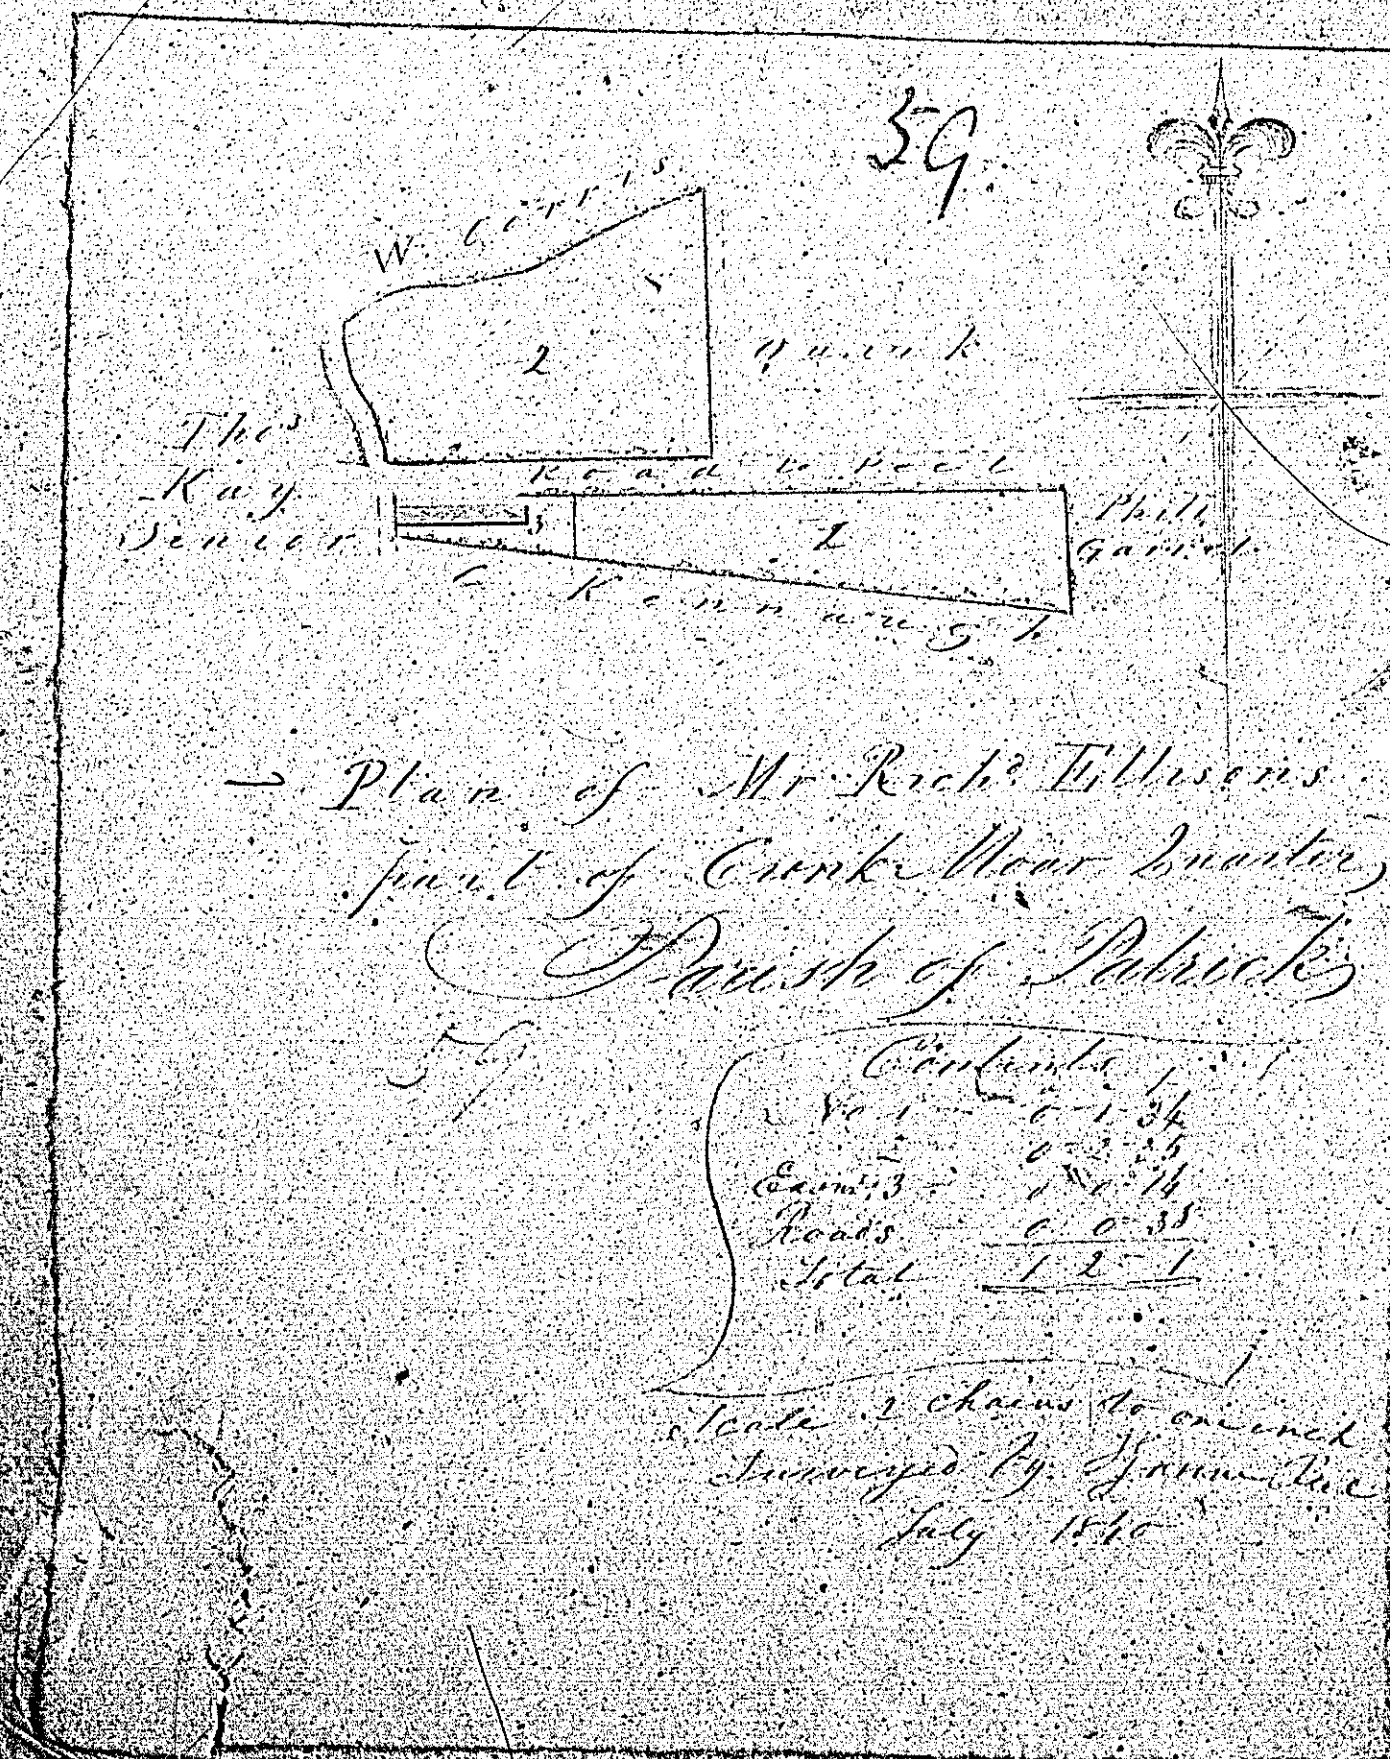 59.
W. Corris
2
Quirk
Thos
Kay
Senior
Road to Peel
3
2
Phili
Garret
C Kennaugh
Plan of Mr Richd Ellisons
part of Cronk Moar Quarter
Parish of Patrick
59
Contents
No 1 0 1 34
2 0 2
3 0 0 14
Roads 0 0 38
Total 1 2 1
Scale 2 chains to one inch
Surveyed by
July 1840